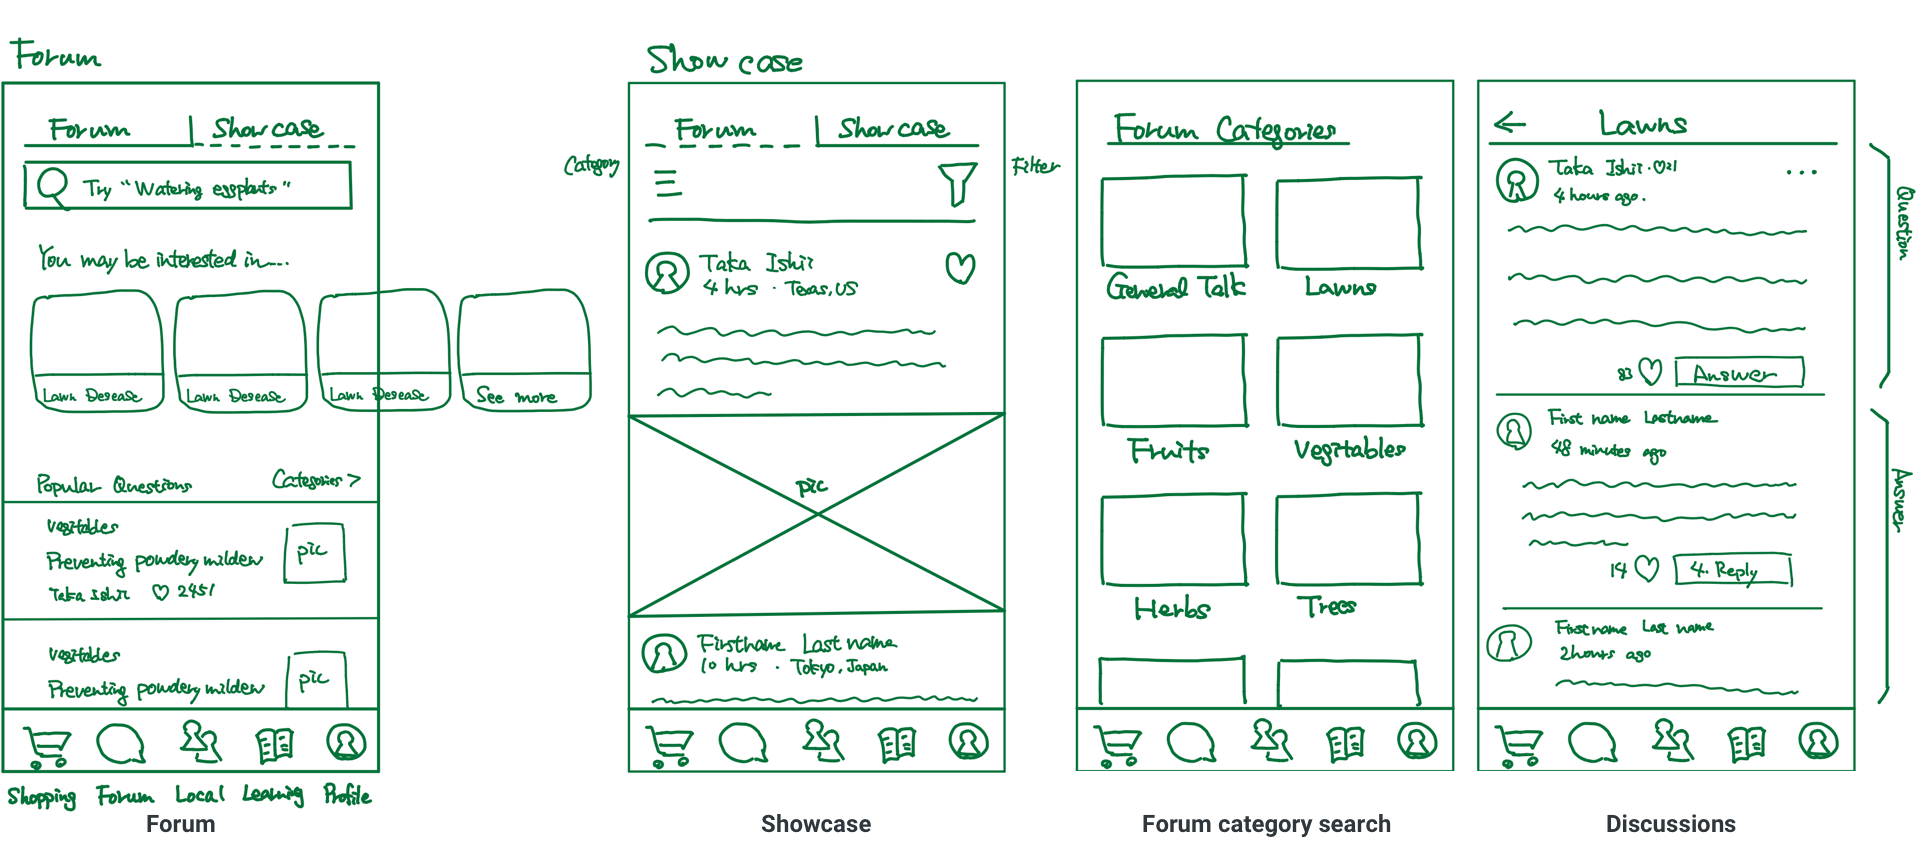 Forum
Forum
Showcase
Try "Watering eggplants"
You may be interested in....
Lawn Desease
Lawn Desease
Lawn Desease
See more
Popular Questions
Categories >
Vegitables
Preventing powdery mildew
Taka Ishii ♡ 2451
pic
Vegitables
Preventing powdery mildew
pic
Shopping
Forum
Local
Learning
Profile
Forum
Show case
Forum
Showcase
Category
Filter
Taka Ishii
4 hrs · Texas, US
pic
Firstname Last name
10 hrs · Tokyo, Japan
Showcase
Forum Categories
General Talk
Lawns
Fruits
Vegitables
Herbs
Trees
Forum category search
← Lawns
Taka Ishii · ♡21
...
4 hours ago.
83 ♡ Answer
Question
First name Lastname
48 minutes ago
14 ♡ 4. Reply
First name Last name
2 hours ago
Answer
Discussions